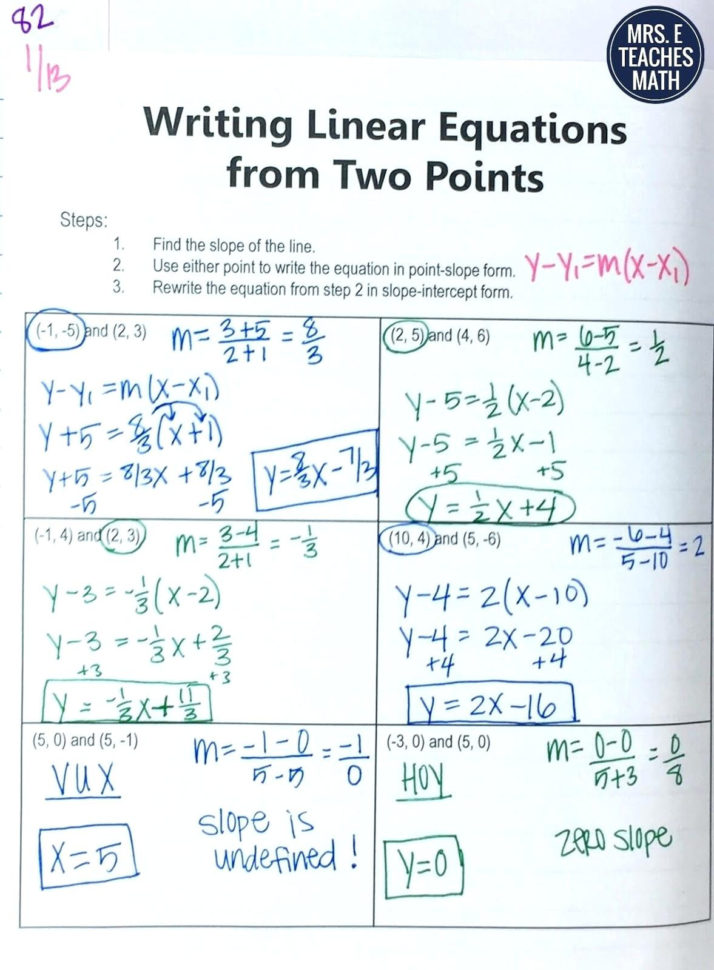 82
1/13
MRS. E
TEACHES
MATH
Writing Linear Equations
from Two Points
Steps:
1. Find the slope of the line.
2. Use either point to write the equation in point-slope form. y-y₁=m(x-x₁)
3. Rewrite the equation from step 2 in slope-intercept form.
(-1, -5) and (2, 3) m= 3+5/2+1 = 8/3
y-y₁=m(x-x₁)
y+5=8/3(x+1)
y+5=8/3x+8/3
-5 -5
y=8/3x-7/3
(2, 5) and (4, 6) m= 6-5/4-2 = 1/2
y-5=1/2(x-2)
y-5=1/2x-1
+5 +5
y=1/2x+4
(-1, 4) and (2, 3) m= 3-4/2+1 = -1/3
y-3=-1/3(x-2)
y-3=-1/3x+2/3
+3 +3
y=-1/3x+11/3
(10, 4) and (5, -6) m= -6-4/5-10 =2
y-4=2(x-10)
y-4=2x-20
+4 +4
y=2x-16
(5, 0) and (5, -1) m= -1-0/5-5 = -1/0
VUX
slope is
undefined!
x=5
(-3, 0) and (5, 0) m= 0-0/5+3 = 0/8
HOY
zero slope
y=0